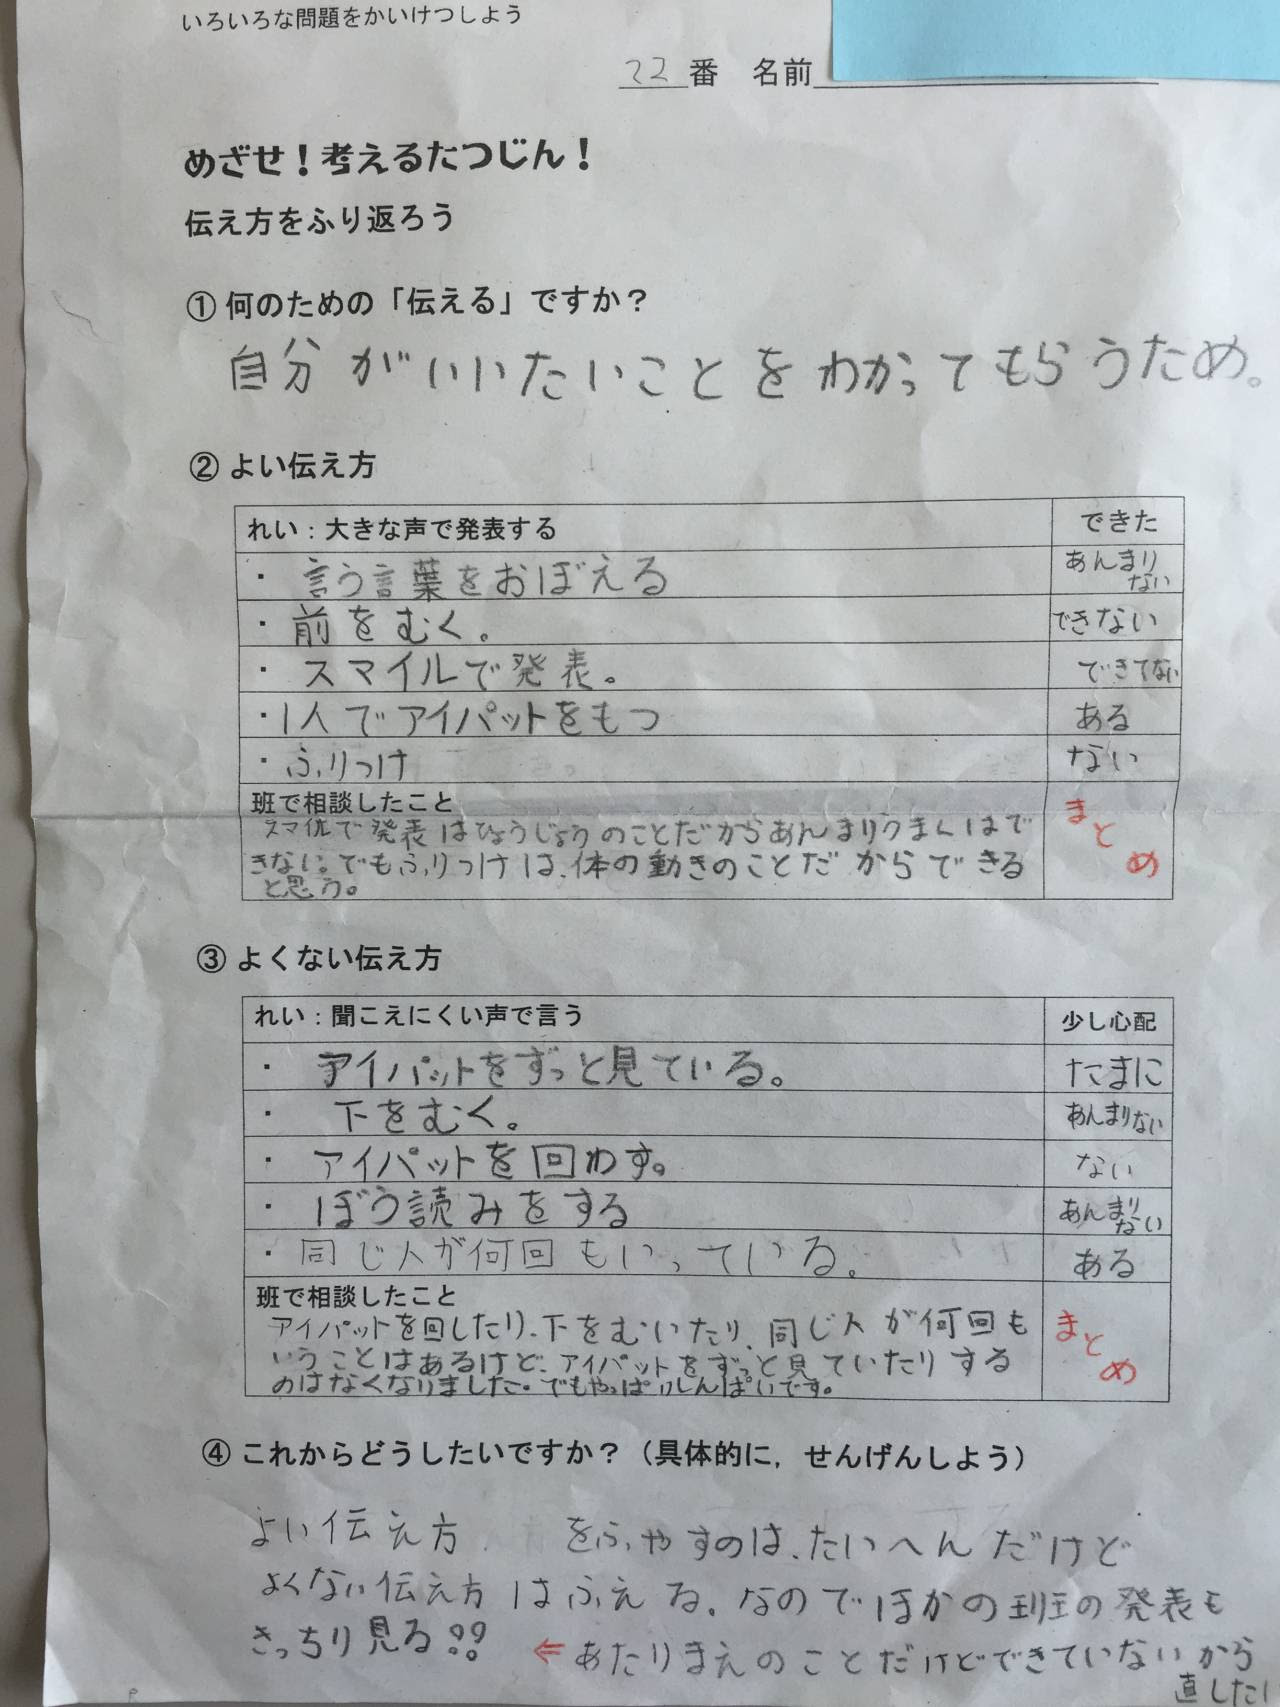 いろいろな問題をかいけつしよう
22番 名前
めざせ！考えるたつじん！
伝え方をふり返ろう
① 何のための「伝える」ですか？
自分がいいたいことをわかってもらうため。
② よい伝え方
れい：大きな声で発表する できた
・ 言う言葉をおぼえる あんまりない
・ 前をむく。 できない
・ スマイルで発表。 できてない
・1人でアイパットをもつ ある
・ふりつけ ない
班で相談したこと まとめ
スマイルで発表はひょうじょうのことだからあんまりうまくはで
きない。でもふりつけは、体の動きのことだからできる
と思う。
③ よくない伝え方
れい：聞こえにくい声で言う 少し心配
・ アイパットをずっと見ている。 たまに
・ 下をむく。 あんまりない
・ アイパットを回わす。 ない
・ ぼう読みをする あんまりない
・ 同じ人が何回もいっている。 ある
班で相談したこと まとめ
アイパットを回したり、下をむいたり、同じ人が何回も
いうことはあるけど、アイパットをずっと見ていたりする
のはなくなりました。でもやっぱりしんぱいです。
④ これからどうしたいですか？（具体的に，せんげんしよう）
よい伝え方 をふやすのは、たいへんだけど
よくない伝え方はふえる。なのでほかの班の発表も
きっちり見る!? ⇐あたりまえのことだけどできていないから
直したい